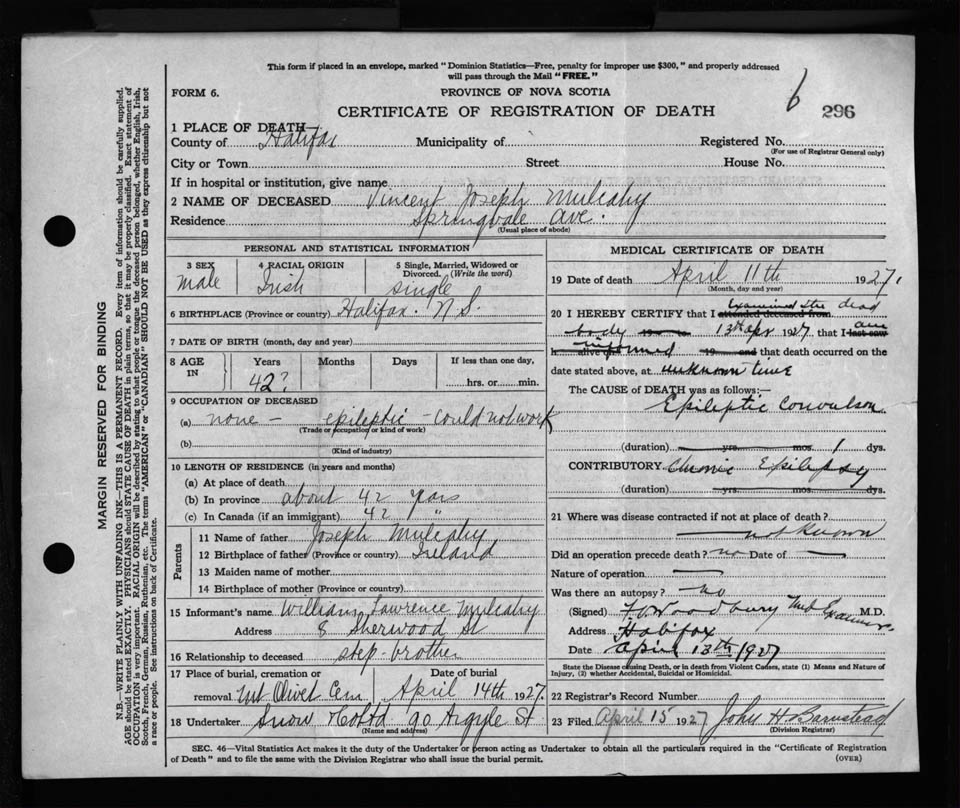 This form if placed in an envelope, marked "Dominion Statistics—Free, penalty for improper use $300," and properly addressed
will pass through the Mail "FREE."
FORM 6.
PROVINCE OF NOVA SCOTIA
6
296
CERTIFICATE OF REGISTRATION OF DEATH
1 PLACE OF DEATH
County of Halifax Municipality of Registered No.
(For use of Registrar General only)
City or Town Street House No.
If in hospital or institution, give name
2 NAME OF DECEASED Vincent Joseph Mulcahy
Residence Springvale Ave.
(Usual place of abode)
PERSONAL AND STATISTICAL INFORMATION
3 SEX 4 RACIAL ORIGIN 5 Single, Married, Widowed or
Divorced. (Write the word)
Male Irish single
6 BIRTHPLACE (Province or country) Halifax. N.S.
7 DATE OF BIRTH (month, day and year)
8 AGE IN Years Months Days If less than one day,
42? hrs. or min.
9 OCCUPATION OF DECEASED
(a) none – epileptic – could not work
(Trade or occupation or kind of work)
(b)
(Kind of industry)
10 LENGTH OF RESIDENCE (in years and months)
(a) At place of death
(b) In province about 42 years
(c) In Canada (if an immigrant) 42 "
Parents
11 Name of father Joseph Mulcahy
12 Birthplace of father (Province or country) Ireland
13 Maiden name of mother
14 Birthplace of mother (Province or country)
15 Informant's name William Lawrence Mulcahy
Address 8 Sherwood St
16 Relationship to deceased step-brother
17 Place of burial, cremation or Date of burial
removal Mt Olivet Cem April 14th 1927.
18 Undertaker Snow & Co Ltd 90 Argyle St
(Name and address)
MEDICAL CERTIFICATE OF DEATH
19 Date of death April 11th 1927.
(Month, day and year)
examined the dead
20 I HEREBY CERTIFY that I attended deceased from
body 13th Apr 1927, that I last saw
am
informed
h alive on 19 and that death occurred on the
date stated above, at unknown time
The CAUSE of DEATH was as follows:—
Epileptic Convulson
(duration) yrs. mos. 1 dys.
CONTRIBUTORY Chronic Epilepsy
(duration) yrs. mos. dys.
21 Where was disease contracted if not at place of death?
not known
Did an operation precede death? no Date of —
Nature of operation —
Was there an autopsy? — no
(Signed) Woodbury Med Examiner. M.D.
Address Halifax
Date April 13th 1927
State the Disease causing Death, or in death from Violent Causes, state (1) Means and Nature of
Injury, (2) whether Accidental, Suicidal or Homicidal.
22 Registrar's Record Number
23 Filed April 15 1927 John H Barnstead
(Division Registrar)
SEC. 46—Vital Statistics Act makes it the duty of the Undertaker or person acting as Undertaker to obtain all the particulars required in the "Certificate of Registration
of Death" and to file the same with the Division Registrar who shall issue the burial permit.
(OVER)
MARGIN RESERVED FOR BINDING
N.B.—WRITE PLAINLY WITH UNFADING INK—THIS IS A PERMANENT RECORD. Every item of information should be carefully supplied.
AGE should be stated EXACTLY. PHYSICIANS should STATE CAUSE OF DEATH in plain terms, so that it may be properly classified. Exact statement of
OCCUPATION is very important. RACIAL ORIGIN will be described by stating to what people or tongue the deceased person belonged, whether English, Irish,
Scotch, French, German, Russian, Ruthenian, etc. The terms "AMERICAN" or "CANADIAN" SHOULD NOT BE USED as they express citizenship but not
a race or people. See instructions on back of Certificate.